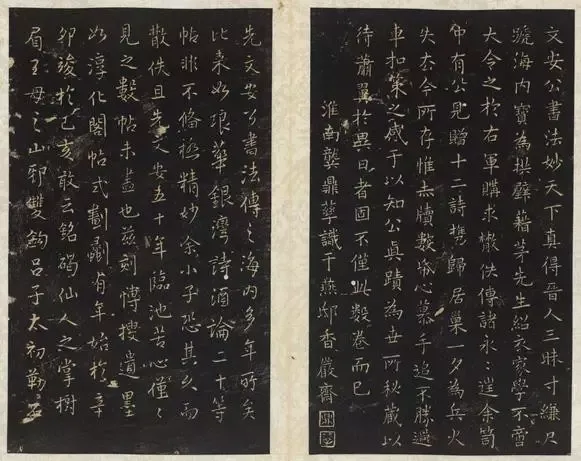 文安公書法妙天下真得晉人三昧寸縑尺
蹏海内寶為拱璧藉茅先生紹衣家學不啻
大令之於右軍購求橅佚傳諸永永選余笥
中有公見贈十二詩攜歸居巢一夕為兵火
失去今所存惟赤牘數帋心慕手追不勝過
車扣策之感于以知公真蹟為世所秘藏以
待蕭翼於異日者固不僅此數卷而已
淮南龔鼎孳識于燕邸香嚴齋
先文安公書法傳之海内多年所矣
比來如琅華館銀灣詩酒論二十等
帖非不備極精妙余小子恐其久而
散佚且先文安五十年臨池苦心僅僅
見之數帖未盡也茲刻博搜遺墨
如淳化閣帖式劃劂有年始於辛
卯竣於己亥敢云銘碣仙人之掌樹
眉王母之山邪雙鉤呂子太初勒石